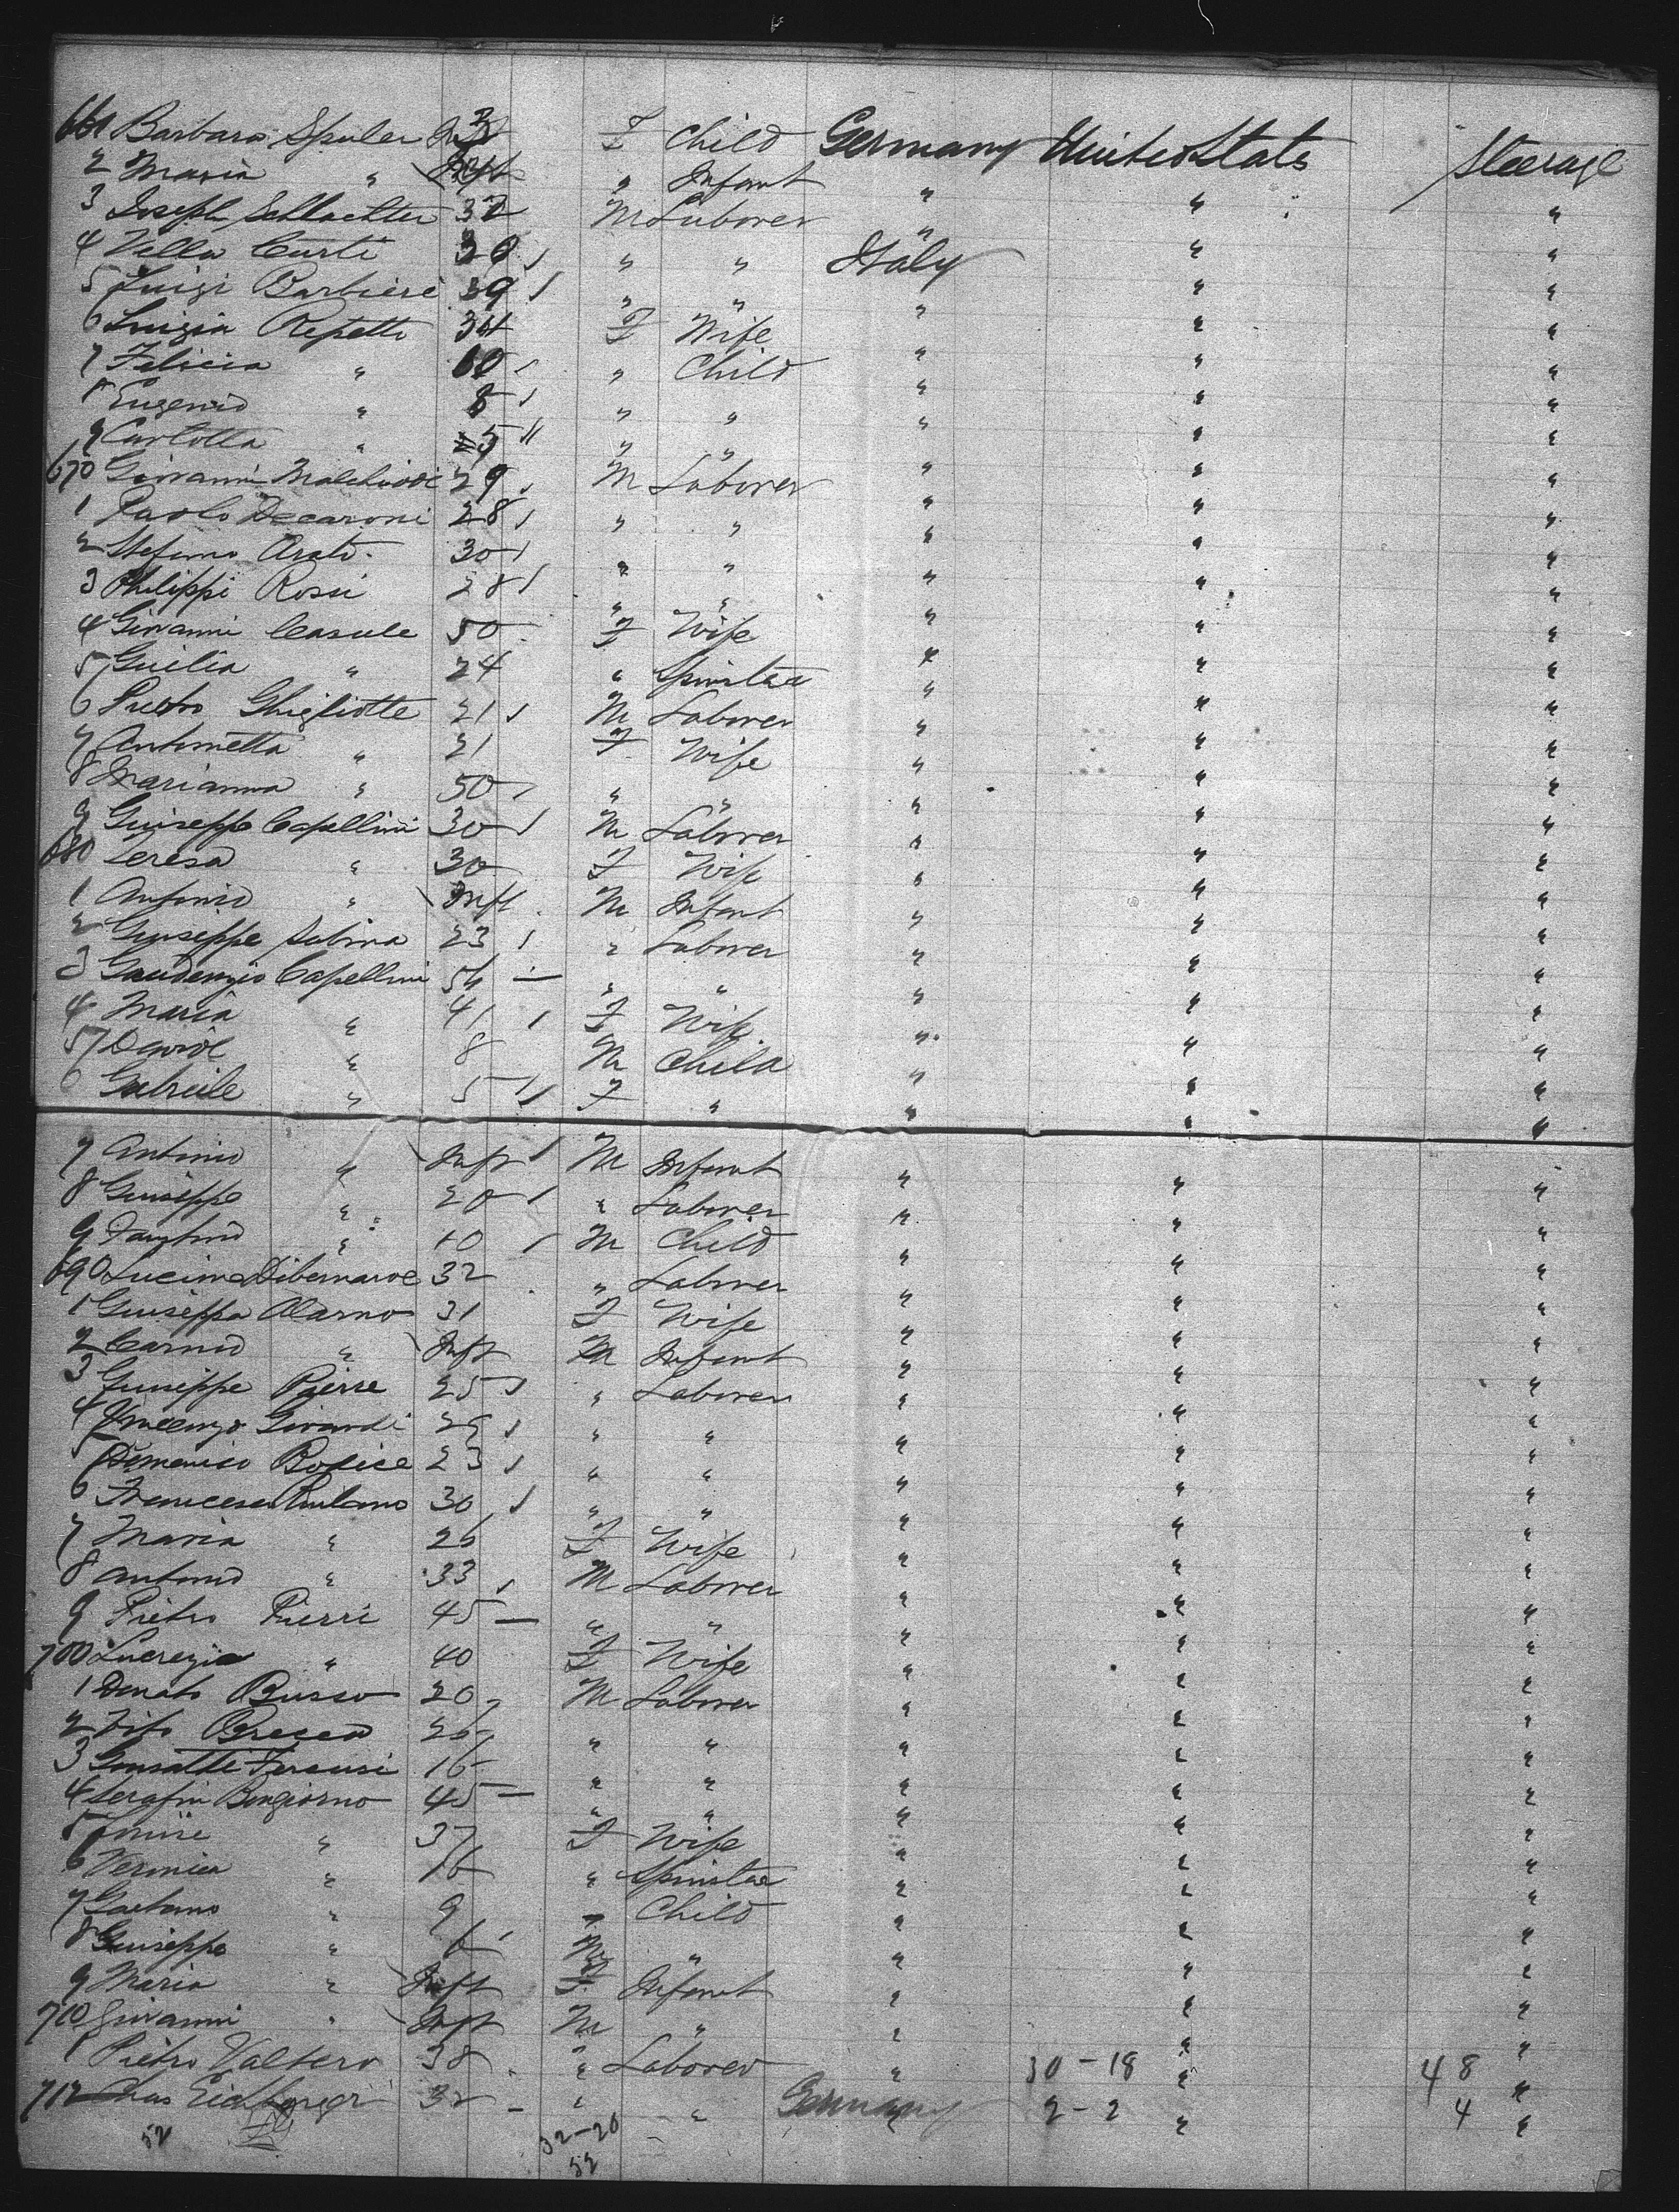 661 Barbara Spuler 3 F Child Germany United States Steerage
2 Maria " Inft " Infant " " "
3 Joseph Schlachter 32 M Laborer " " "
4 Villa Curti 20 " " Italy " "
5 Luigi Barbieri 39 " " " " "
6 Luigia Repetti 34 F Wife " " "
7 Felicia " 10 " Child " " "
8 Eugenio " 8 " " " " "
9 Carlotta " 5 " " " " "
670 Giovanni Malchiodi 29 M Laborer " " "
1 Paolo Decaroni 28 " " " " "
2 Stefano Arato 30 " " " " "
3 Philippi Rossi 28 " " " " "
4 Giovanni Casule 50 F Wife " " "
5 Guilia " 24 " Spinster " " "
6 Pietro Ghigliotte 21 M Laborer " " "
7 Antonietta " 21 F Wife " " "
8 Marianna " 50 " " " " "
9 Guiseppe Capellini 30 M Laborer " " "
680 Teresa " 30 F Wife " " "
1 Antonio " Inft M Infant " " "
2 Guiseppe Sabina 23 " Laborer " " "
3 Gaudenzio Capellini 54 — " " " " "
4 Maria " 41 F Wife " " "
5 Davide " 8 M Child " " "
6 Gabriele " 5 F " " " "
7 Antonio " Inft M Infant " " "
8 Guiseppe " 20 " Laborer " " "
9 Faustino " 10 M Child " " "
690 Luciano Dibernarde 32 " Laborer " " "
1 Guiseppa Alarno 31 F Wife " " "
2 Carmo " Inft M Infant " " "
3 Guiseppe Pierre 25 " Laborer " " "
4 Vincenzo Girardi 29 " " " " "
5 Domenico Bofice 23 " " " " "
6 Francesca Rulano 30 " " " " "
7 Maria " 26 F Wife " " "
8 Antonio " 33 M Laborer " " "
9 Pietro Pierri 45 — " " " " "
700 Lucrezia " 40 F Wife " " "
1 Donato Busso 20 M Laborer " " "
2 Vito Grecco 26 " " " " "
3 16 " " " " "
4 Serafin Bongiorno 45 — " " " " "
5 Louise " 37 F Wife " " "
6 Veronica " 16 " Spinster " " "
7 Gaetano " 9 " Child " " "
8 Guiseppe " 6 M " " " "
9 Maria " Inft F Infant " " "
710 Giovanni " Inft M " " " "
1 Pietro Valsero 38 " Laborer " 30-18 " 48 "
712 Chas 32 — " " Germany 2-2 " 4 "
52 32-20
52